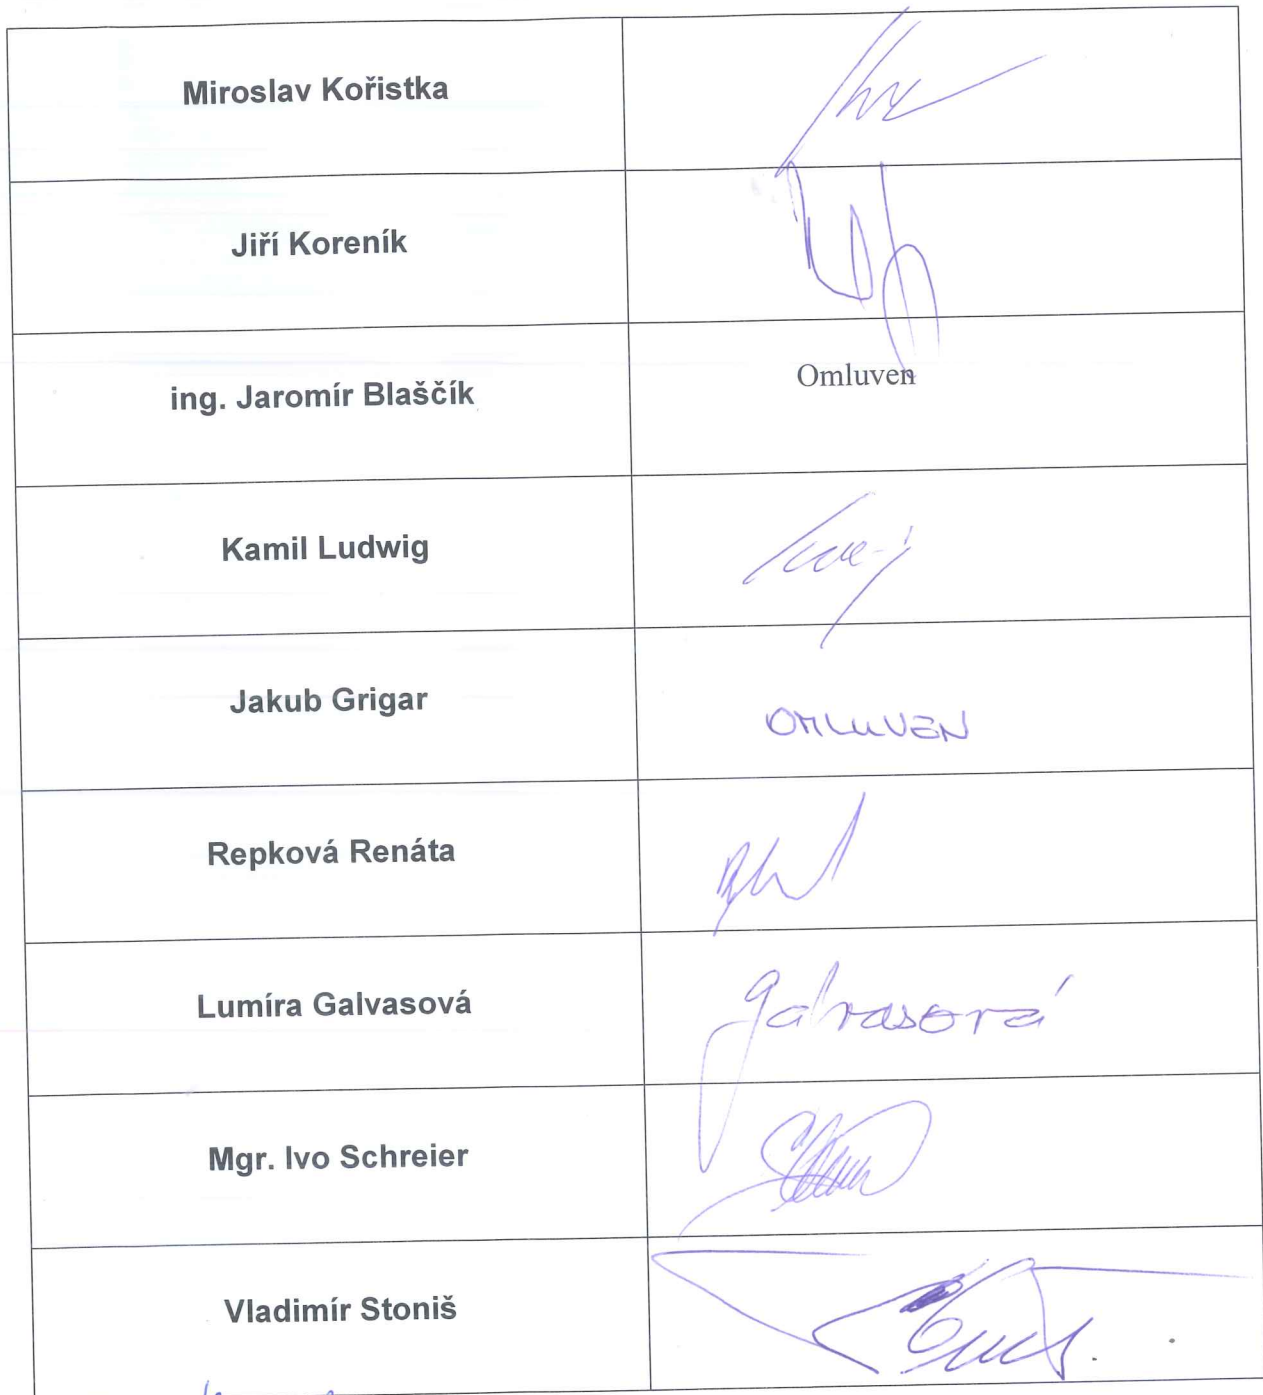 Miroslav Kořistka
Jiří Koreník
ing. Jaromír Blaščík
Omluven
Kamil Ludwig
Jakub Grigar
OMLUVEN
Repková Renáta
Lumíra Galvasová
Galvasová
Mgr. Ivo Schreier
Vladimír Stoniš